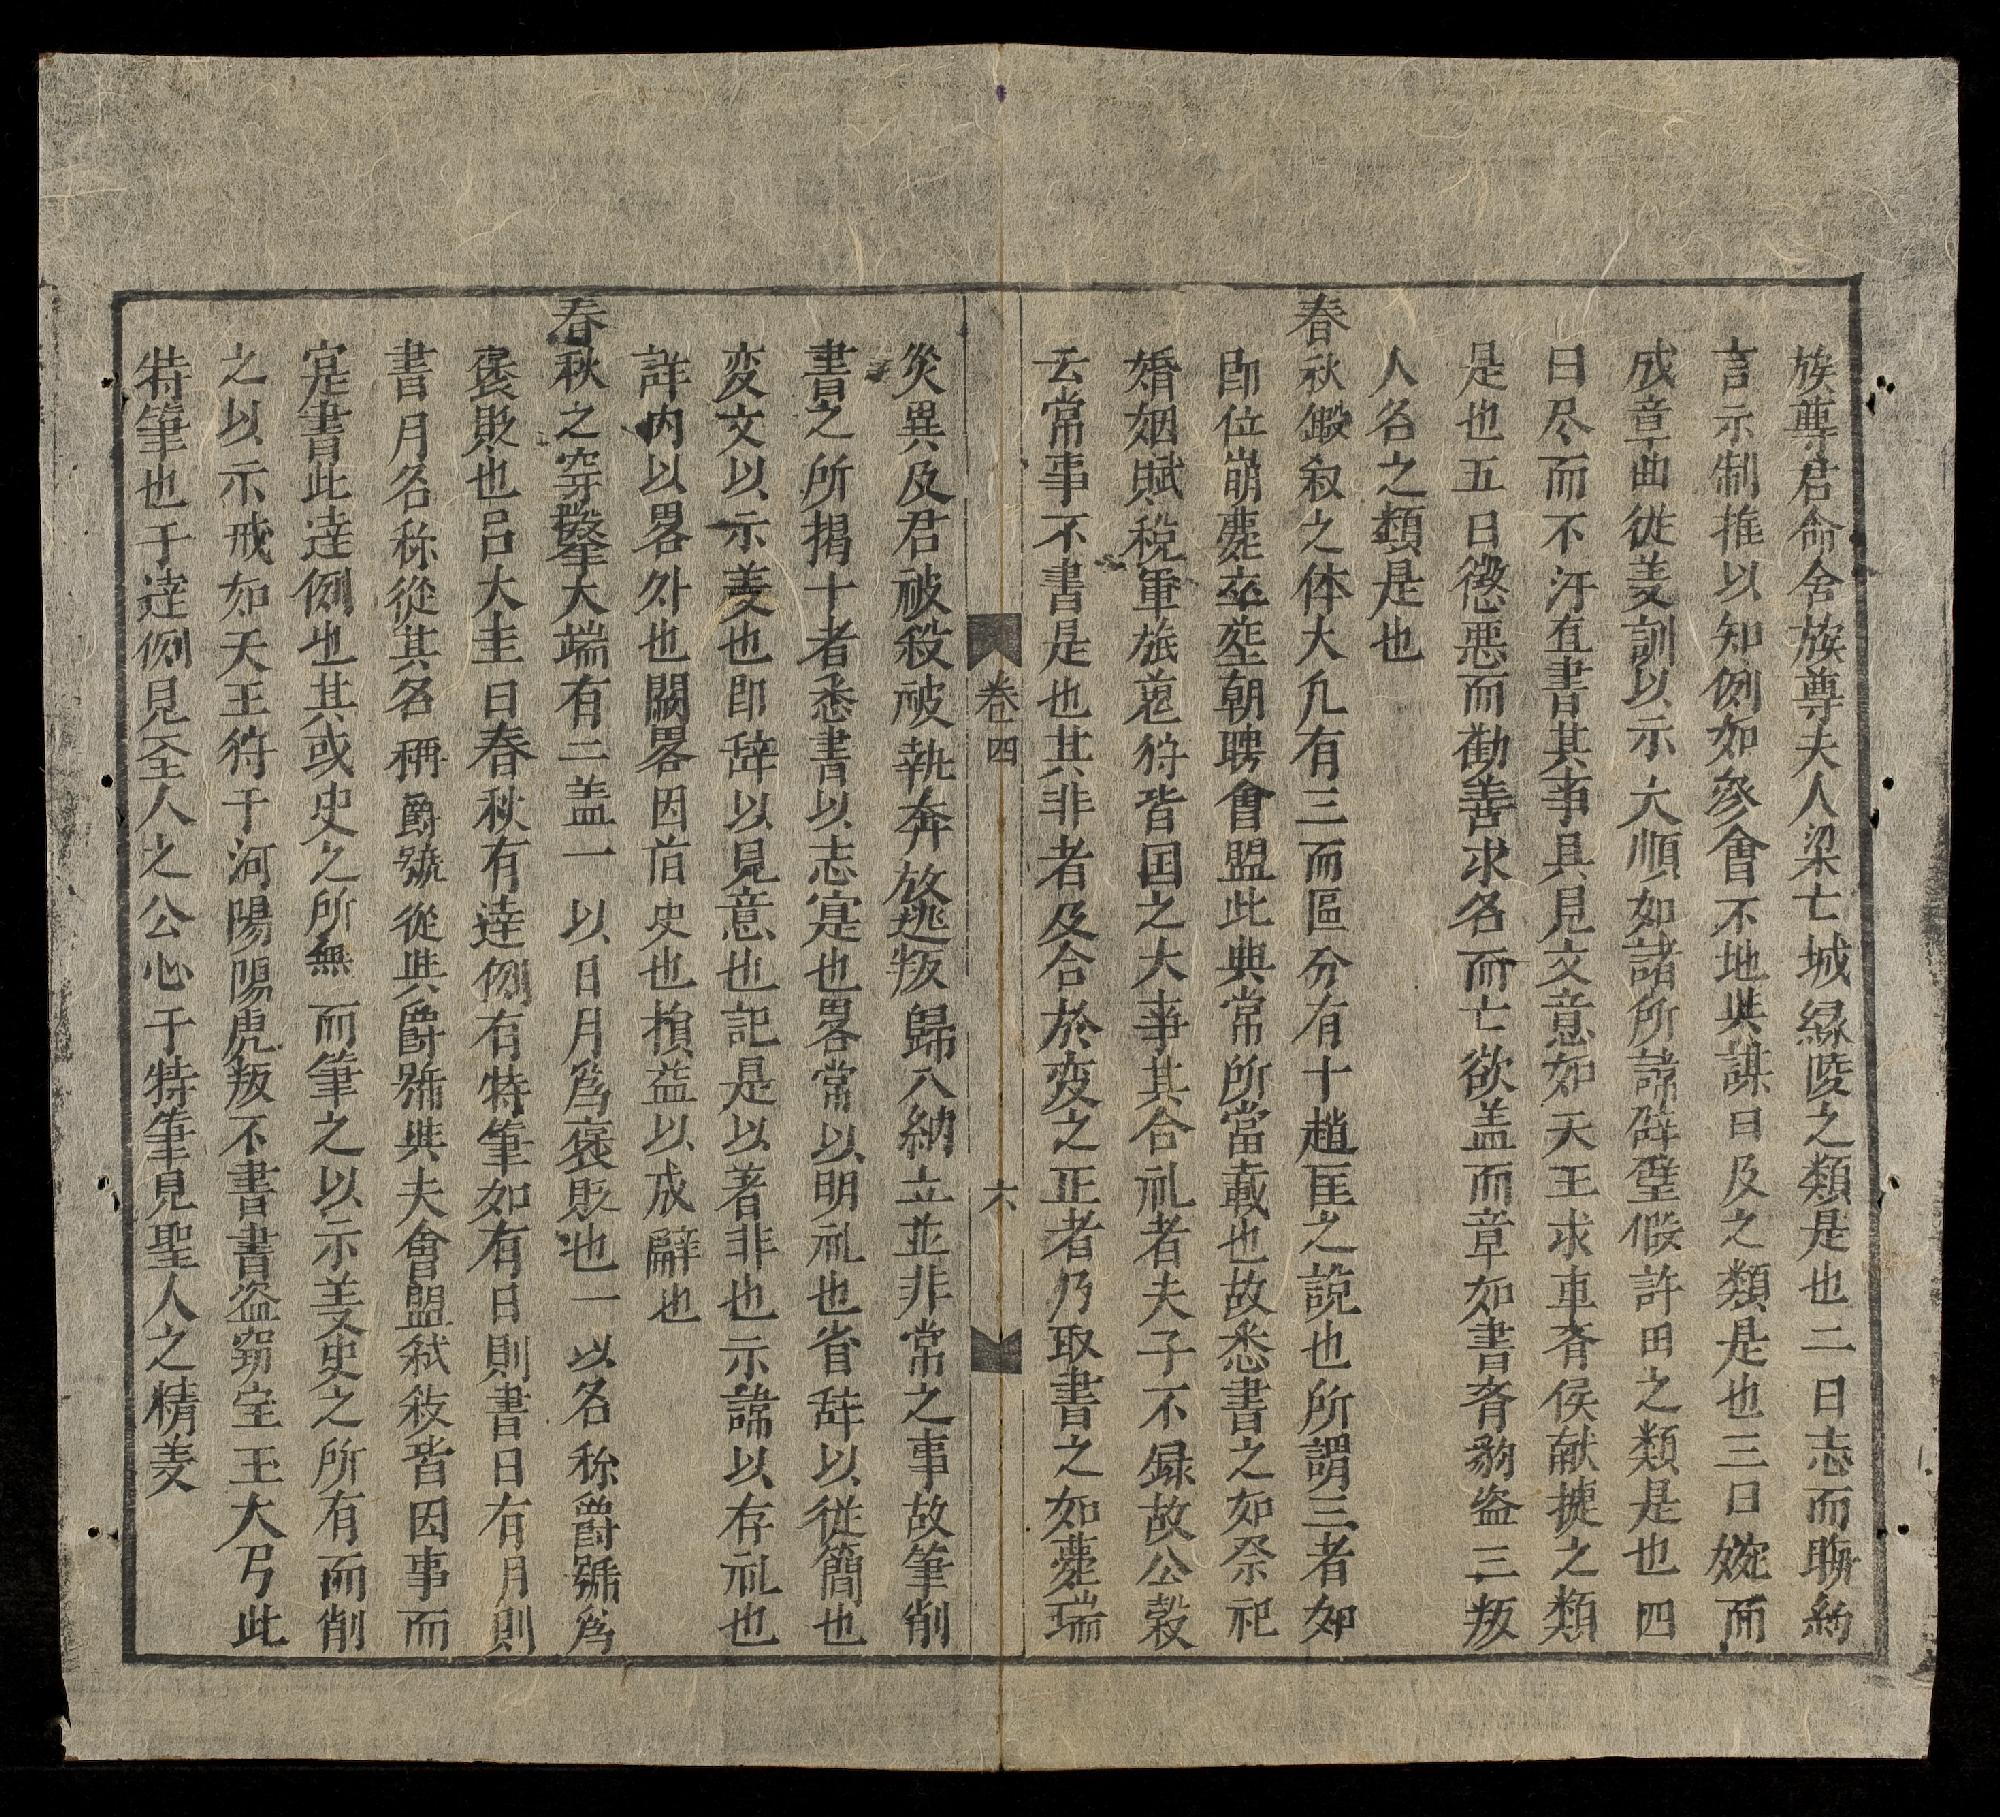 族尊君命舍族尊夫人梁亡城緣陵之類是也二曰志而晦約
言示制推以知例如參會不地與謀曰及之類是也三曰婉而
成章曲從義訓以示大順如諸所諱辟璧假許田之類是也四
曰尽而不汙直書其事具見文意如天王求車齐侯献捷之類
是也五曰懲悪而勸善求名而亡欲盖而章如書齐豹盗三叛
人名之類是也
春秋綴叙之体大凡有三而區分有十趙匡之說也所謂三者如
即位崩薨卒塟朝聘會盟此典常所當載也故悉書之如祭祀
婚姻賦稅軍旅蒐狩皆囯之大事其合礼者夫子不録故公穀
云常事不書是也其非者及合於変之正者乃取書之如慶瑞
卷四 六
災異及君被殺被執奔放逃叛歸入納立並非常之事故筆削
書之所揭十者悉書以志寔也畧常以明礼也省辞以從簡也
変文以示義也即辞以見意也記是以著非也示諱以存礼也
詳内以畧外也闕畧因旧史也損益以成辭也
春秋之穿鑿大端有二盖一以日月爲褒貶也一以名称爵號爲
褒貶也吕大圭曰春秋有達例有特筆如有日則書日有月則
書月名称從其名稱爵號從其爵號與夫會盟弑殺皆因事而
寔書此達例也其或史之所無而筆之以示義史之所有而削
之以示戒如天王狩于河陽陽虎叛不書書盗窃宝玉大弓此
特筆也于達例見圣人之公心于特筆見聖人之精義